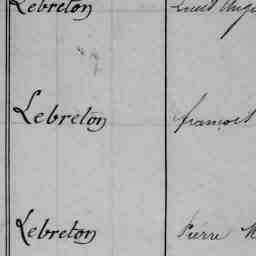 Lebreton
Lebreton françois
Lebreton Pierre